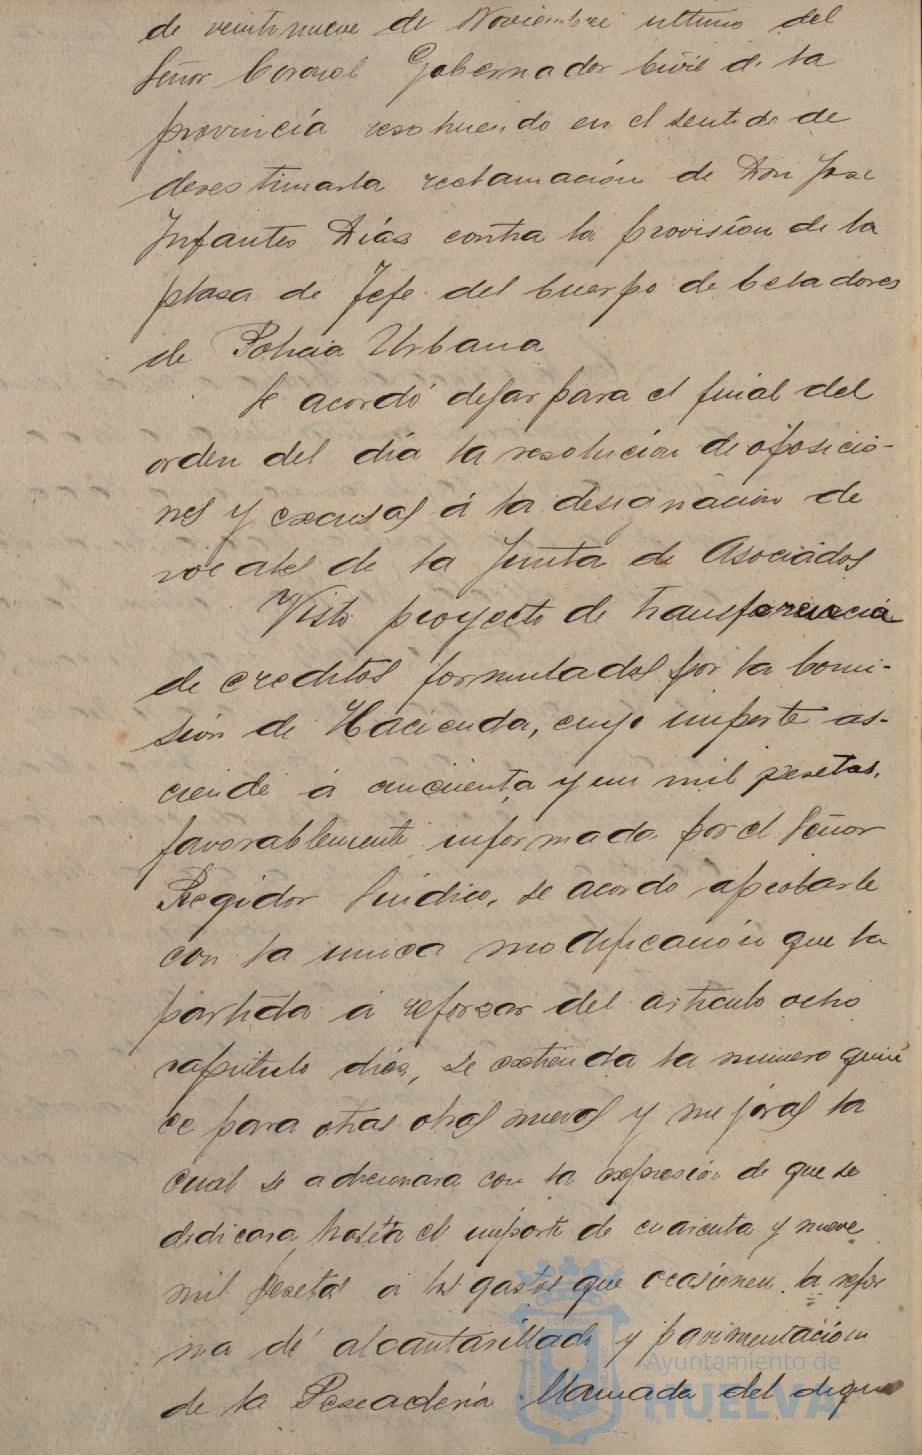 de veintinueve de Noviembre ultimo del
Señor Coronel Gobernador Civil de la
provincia resolviendo en el sentido de
desestimarla reclamación de Don Jose
Infantes Diáz contra la provisión de la
plasa de Jefe del Cuerpo de Celadores
de Policia Urbana
Se acordó dejar para el final del
orden del día la resolución de oposicio-
nes y excusas á la designacion de
vocales de la Junta de Asociados
Visto proyecto de transferencia
de creditos formulados por la Comi-
sion de Hacienda, cuyo importe as-
ciende á cincuenta y un mil pesetas,
favorablemente informada por el Señor
Regidor Sindico, se acordo aprobarle
con la unica modificación que la
partida á reforzar del articulo ocho
capitulo diéz, se extienda la numero quin
ce para otras obras nuevas y mejoras la
cual se adicionara con la expresión de que se
dedicara hasta el importe de cuarenta y nueve
mil pesetas á los gastos que ocasionen la refor
ma de alcantarillado y pavimentación
de la Pescaderia llamada del dique
Ayuntamiento de
HUELVA